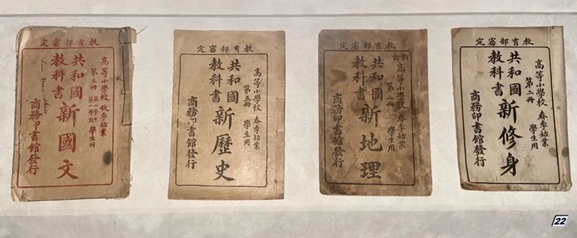 教育部審定
高等小學校 秋季始業
學生用
共和國
教科書
新國文
商務印書館發行
教育部審定
高等小學校 春季始業
第五冊 學生用
共和國
教科書
新歷史
商務印書館發行
教育部審定
高等小學校 春季始業
學生用
共和國
教科書
新地理
商務印書館發行
教育部審定
高等小學校 春季始業
第二冊 學生用
共和國
教科書
新修身
商務印書館發行
22